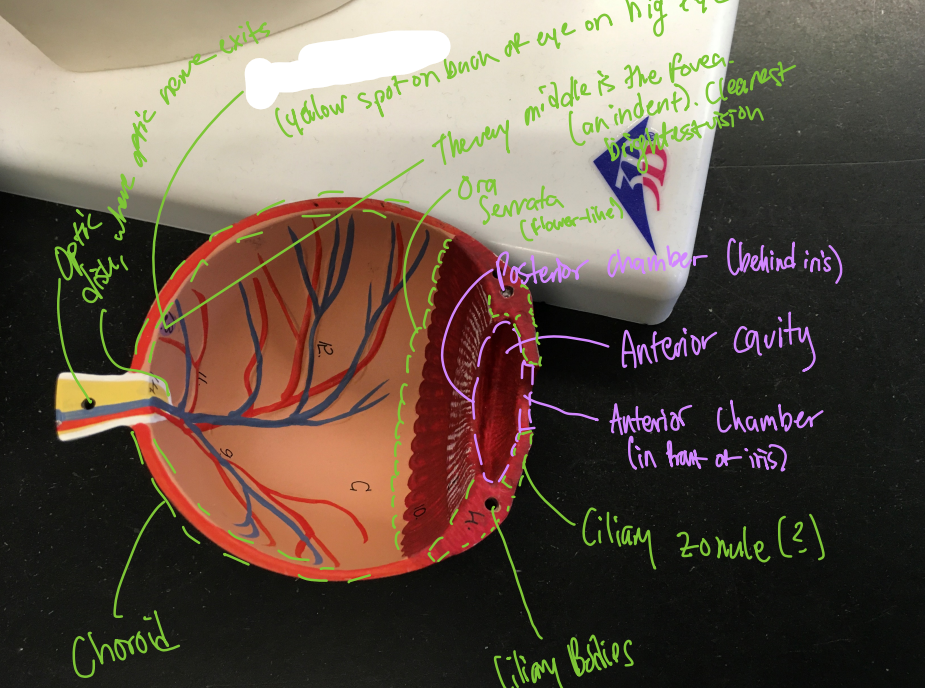 where optic nerve exits
Optic
disk,
(yellow spot on back of eye on big eye
The very middle is the fovea.
(an indent). Clearest
brightest vision
3B
Ora
Serrata
(flower-like)
Posterior chamber (behind iris)
Anterior cavity
Anterior Chamber
(in front of iris)
Ciliary zonule (?)
Ciliary Bodies
Choroid
12.
11.
9
G
10
H.